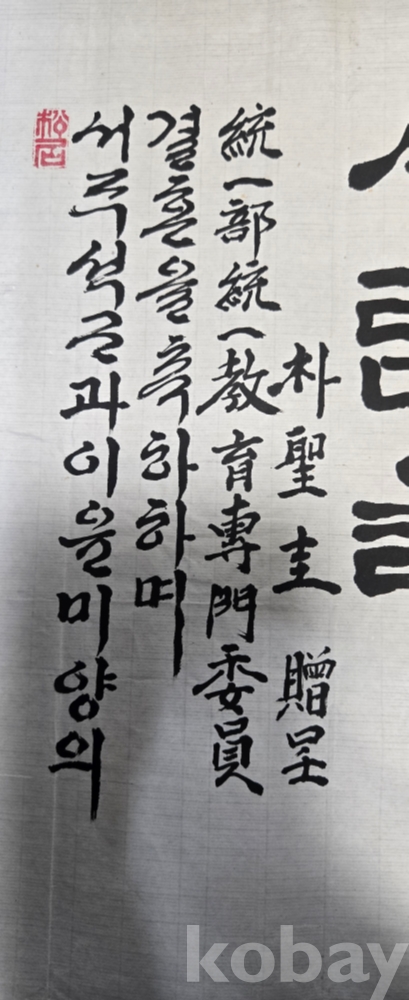 서주석군과이윤미양의
결혼을축하하며
統一部統一教育專門委員
朴聖圭 贈呈
kobay